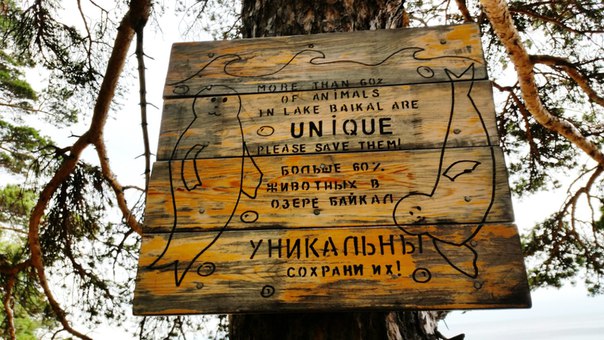 MORE THAN 60%
OF ANIMALS
IN LAKE BAIKAL ARE
UNIQUE
PLEASE SAVE THEM!
БОЛЬШЕ 60%
ЖИВОТНЫХ В
ОЗЕРЕ БАЙКАЛ
УНИКАЛЬНЫ
СОХРАНИ ИХ!